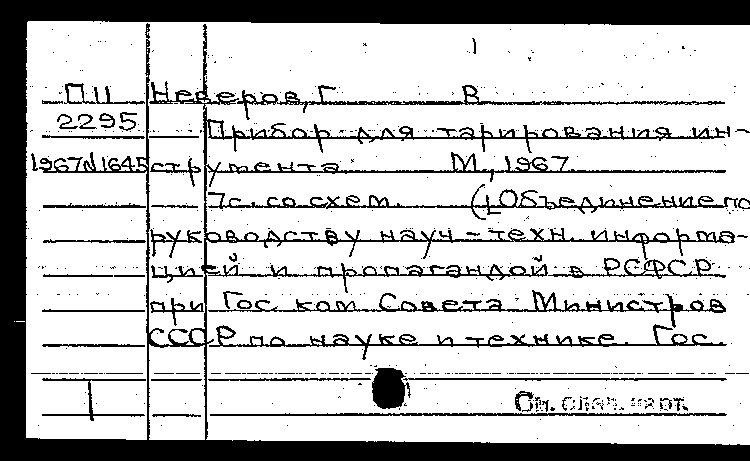 П11 Неверов, Г В
2295 Прибор для тарирования ин-
1967N1645 струмента М., 1967
7с. со схем. (1Объединение по
руководству науч-техн. информа-
цией и пропагандой в РСФСР
при Гос ком Совета Министров
СССР по науке и технике. Гос.
1 См. след. карт.